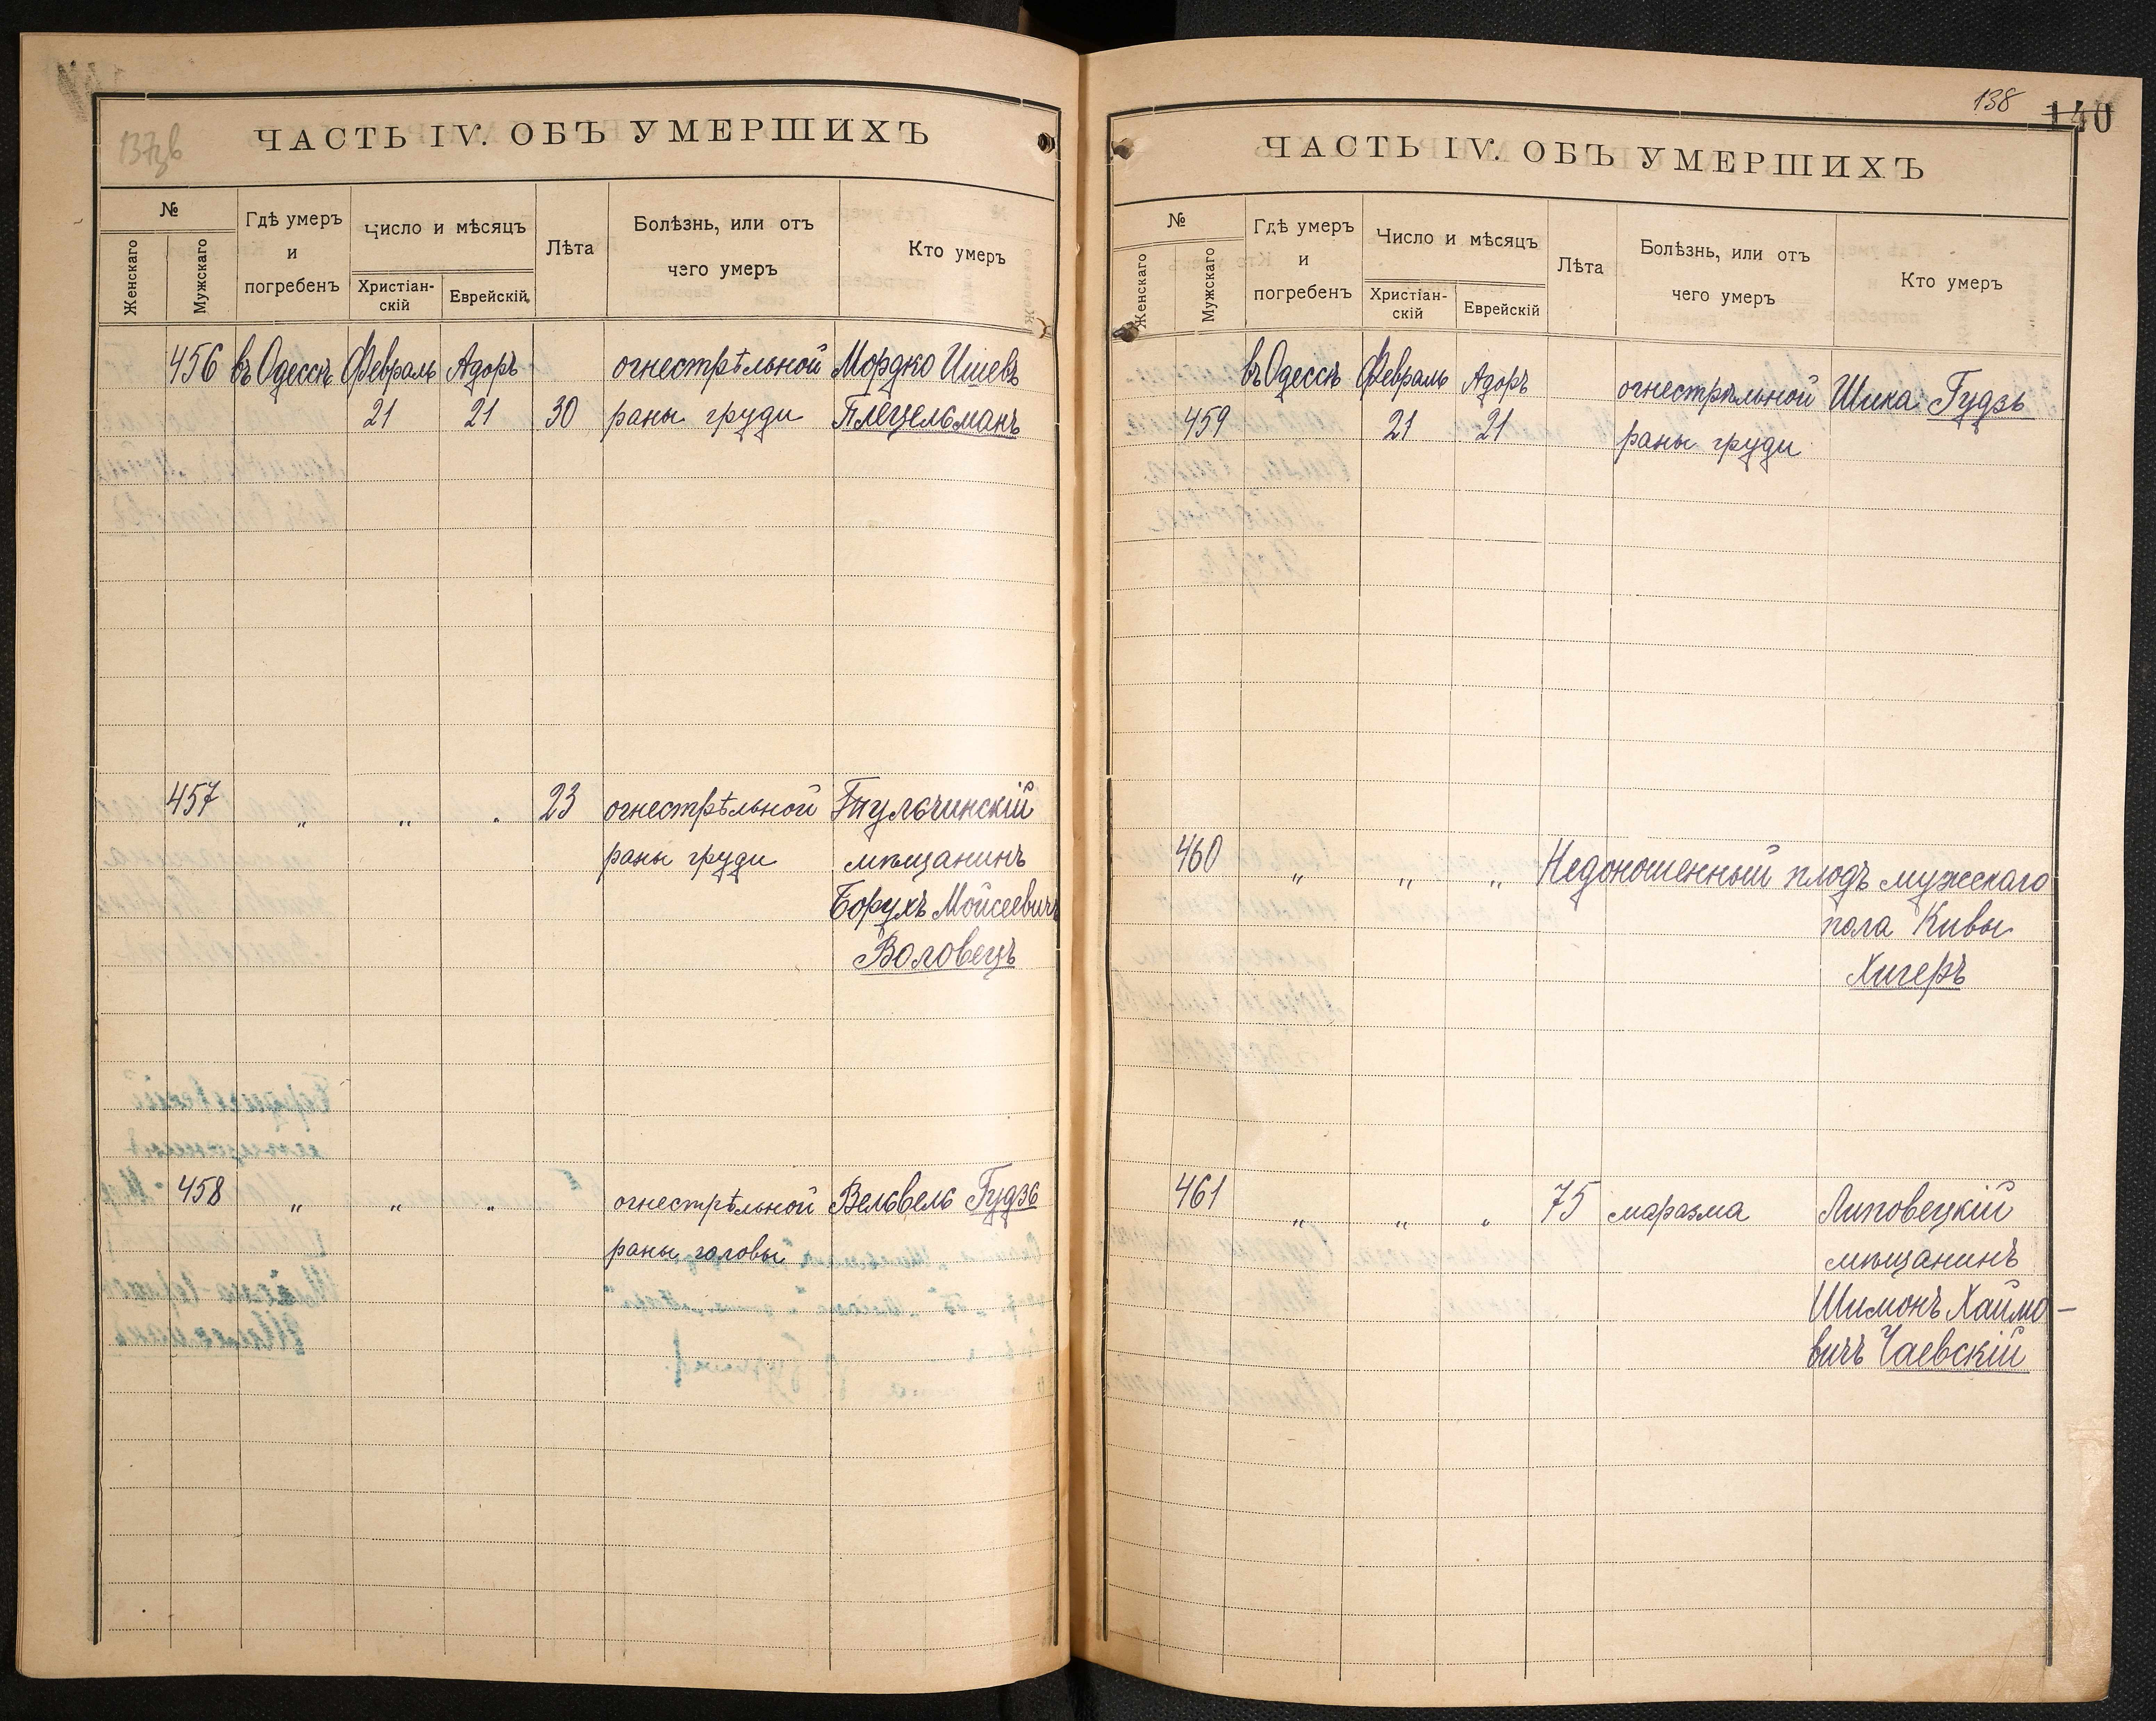 137зв
ЧАСТЬ IV. ОБЪ УМЕРШИХЪ
№
Женскаго
Мужскаго
Гдѣ умеръ
и
погребенъ
Число и мѣсяцъ
Христіан-
скій
Еврейскій
Лѣта
Болѣзнь, или отъ
чего умеръ
Кто умеръ
456 въ Одессѣ Февраль Адоръ огнестрѣльной Мордко Ишевъ
21 21 30 раны груди Плецельманъ
457 „ „ „ 23 огнестрѣльной Тульчинскій
раны груди мѣщанинъ
Борухъ Мойсеевичъ
Воловецъ
458 „ „ „ огнестрѣльной Вельвель Гудзь
раны головы
138
140
ЧАСТЬ IV. ОБЪ УМЕРШИХЪ
№
Женскаго
Мужскаго
Гдѣ умеръ
и
погребенъ
Число и мѣсяцъ
Христіан-
скій
Еврейскій
Лѣта
Болѣзнь, или отъ
чего умеръ
Кто умеръ
въ Одессѣ Февраль Адоръ огнестрѣльной Шика Гудзь
459 21 21 раны груди
460 „ „ „ Недоношенный плодъ мужескаго
пола Кивы
Хигеръ
461 „ „ „ 75 маразма Липовецкій
мѣщанинъ
Шимонъ Хаймо-
вичъ Чаевскій